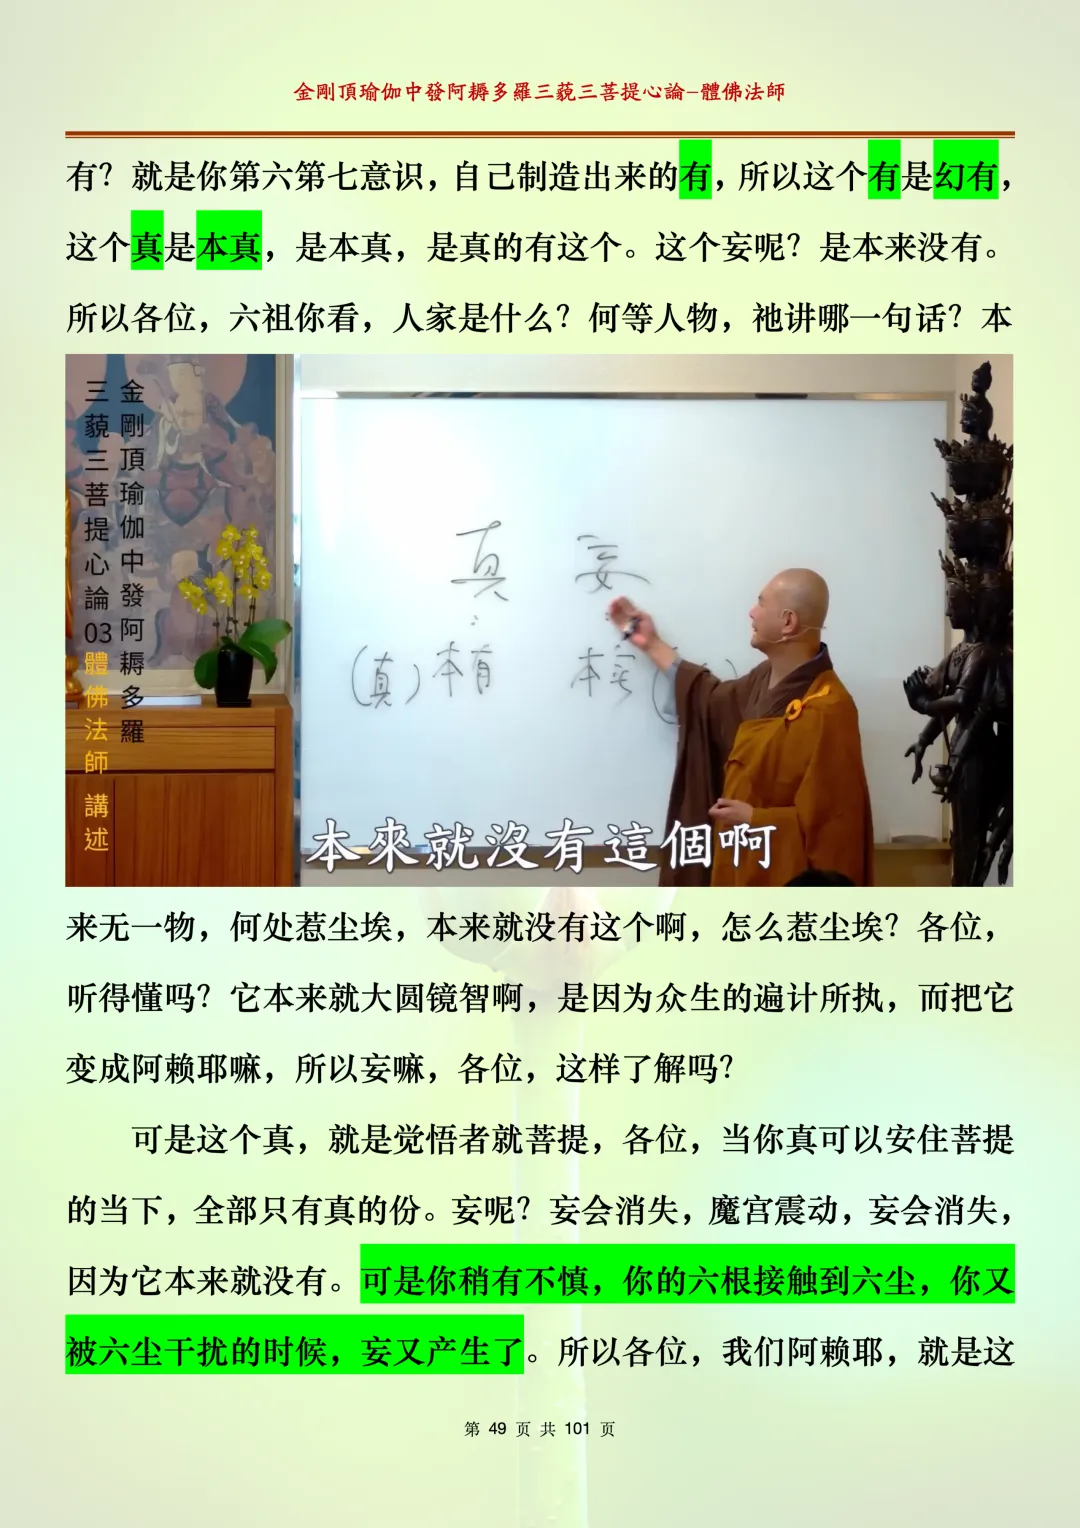 金剛頂瑜伽中發阿耨多羅三藐三菩提心論-體佛法師
有？就是你第六第七意识，自己制造出来的有，所以这个有是幻有，
这个真是本真，是本真，是真的有这个。这个妄呢？是本来没有。
所以各位，六祖你看，人家是什么？何等人物，祂讲哪一句话？本
金剛頂瑜伽中發阿耨多羅
三藐三菩提心論03體佛法師 講述
真 妄
(真)本有 本空
本來就沒有這個啊
来无一物，何处惹尘埃，本来就没有这个啊，怎么惹尘埃？各位，
听得懂吗？它本来就大圆镜智啊，是因为众生的遍计所执，而把它
变成阿赖耶嘛，所以妄嘛，各位，这样了解吗？
可是这个真，就是觉悟者就菩提，各位，当你真可以安住菩提
的当下，全部只有真的份。妄呢？妄会消失，魔宫震动，妄会消失，
因为它本来就没有。可是你稍有不慎，你的六根接触到六尘，你又
被六尘干扰的时候，妄又产生了。所以各位，我们阿赖耶，就是这
第 49 页 共 101 页